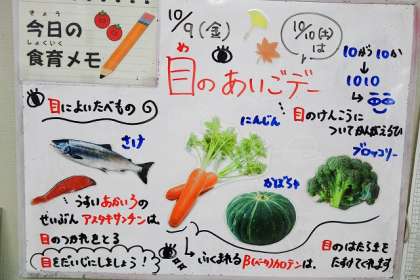 きょう
今日の
しょくいく
食育メモ
10/9(金)
10/10(土)は
10が10か
1010
め
目のあいごデー
目のけんこうに
ついてかんがえるひ
目によいたべもの
さけ
にんじん
かぼちゃ
ブロッコリー
うすいあかいろの
せいぶんアスタキサンチンは
目のつかれをとる
目をだいじにしましょう!
ふくまれるβ(ベータ)カロテンは、
目のはたらきを
たすけてくれます